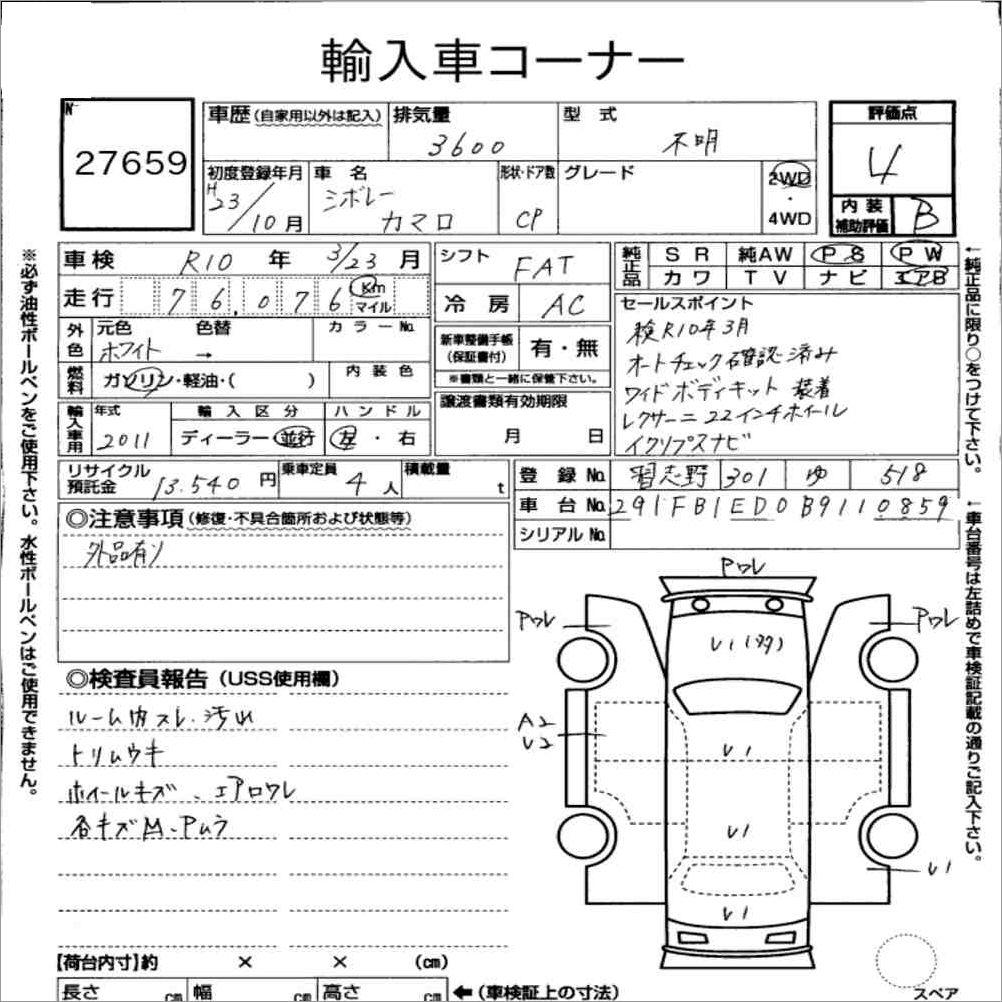 輸入車コーナー
№ 27659
車歴 (自家用以外は記入)
排気量 3600
型式 不明
評価点 4
初度登録年月 H23/10月
車名 シボレー カマロ
形状・ドア数 CP
グレード
2WD ・ 4WD
内装補助評価 B
車検 R10年 3/23月
走行 76,076 Km マイル
外色 元色 ホワイト 色替 → カラーNo.
燃料 ガソリン・軽油・( ) 内装色
輸入車用 年式 2011 輸入区分 ディーラー・並行 ハンドル 左・右
シフト FAT
冷房 AC
新車整備手帳(保証書付) 有・無
※書類と一緒に保管下さい。
譲渡書類有効期限
月 日
純正品 SR 純AW PS PW
カワ TV ナビ エアB
セールスポイント
検R10年3月
オートチェック確認済み
ワイドボディキット 装着
レクサーニ22インチホイール
イクリプスナビ
リサイクル預託金 13.540円
乗車定員 4人
積載量 t
登録No. 習志野 301 ゆ 518
車台No. 291FB1ED0B9110859
シリアルNo.
◎注意事項 (修復・不具合箇所および状態等)
外品有り
◎検査員報告 (USS使用欄)
ルーム内スレ、汚れ
トリムウキ
ホイールキズ、エアロワレ
各キズM、Pムラ
Pワレ
Pワレ
Pワレ
U1(多)
A2
U2
U1
U1
U1
U1
【荷台内寸】約 × × (cm)
長さ cm 幅 cm 高さ cm ←(車検証上の寸法)
スペア
※必ず油性ボールペンをご使用下さい。水性ボールペンはご使用できません。
←純正品に限り○をつけて下さい。
←車台番号は左詰めで車検証記載の通りご記入下さい。